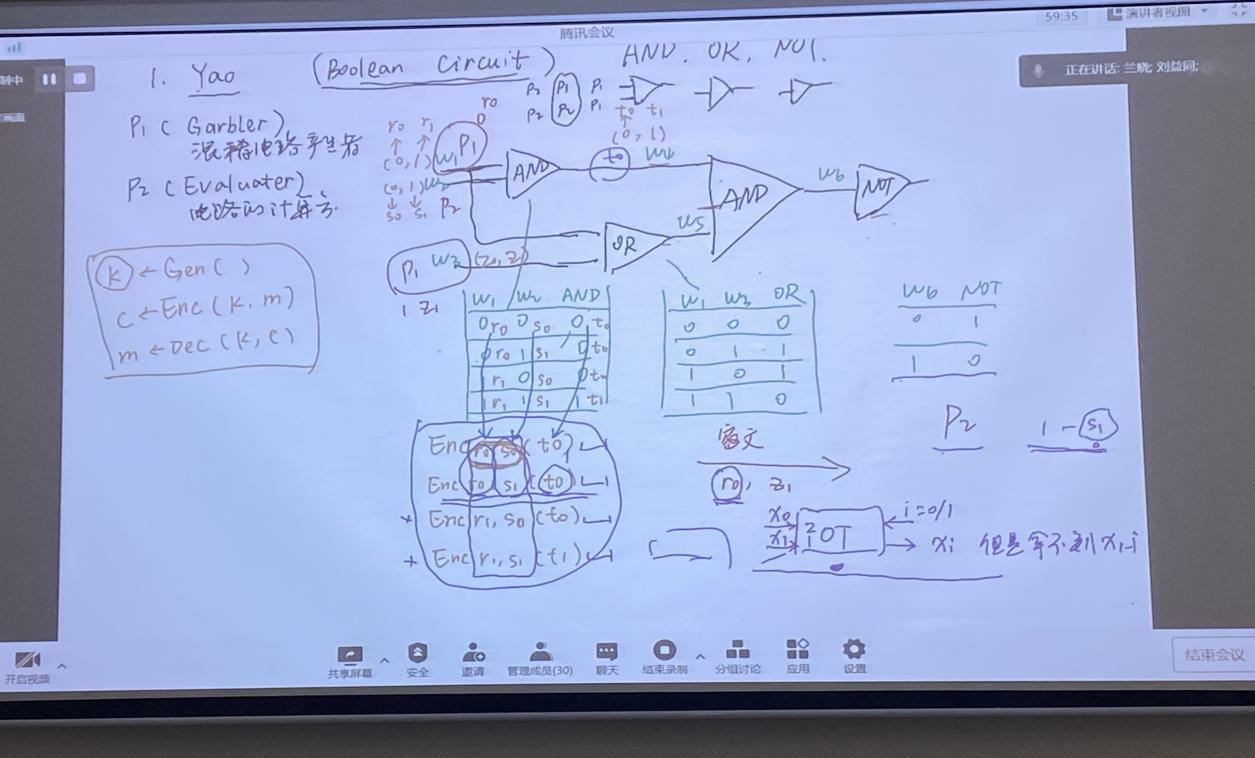 59:35 演讲者视图
腾讯会议
制中
正在讲话: 兰晓; 刘益同;
1. Yao (Boolean Circuit) AND. OR, NOT.
P1 (Garbler)
混淆电路产生者
P2 (Evaluater)
电路的计算方
k ← Gen( )
c ← Enc (k, m)
m ← Dec (k, c)
P2 P1 P1
P2 P2 P1
t0 t1
(0, 1)
r0
0
r0 r1
(0, 1) w1 P1
(0, 1) w2
s0 s1 P2
AND t0 w4
AND w6 NOT
OR w5
P1 w3 (z0, z1)
1 z1
w1 w2 AND
0 r0 0 s0 0 t0
0 r0 1 s1 0 t0
1 r1 0 s0 0 t0
1 r1 1 s1 1 t1
w1 w3 OR
0 0 0
0 1 1
1 0 1
1 1 0
w6 NOT
0 1
1 0
Enc r0 s0 (t0)
Enc r0 s1 (t0)
Enc r1, s0 (t0)
Enc r1, s1 (t1)
密文
r0, z1
P2 1 - s1
x0 i = 0/1
x1 2 1 OT → xi 但是拿不到 x1-i
开启视频
共享屏幕
安全
邀请
管理成员(30)
聊天
结束录制
分组讨论
应用
设置
结束会议